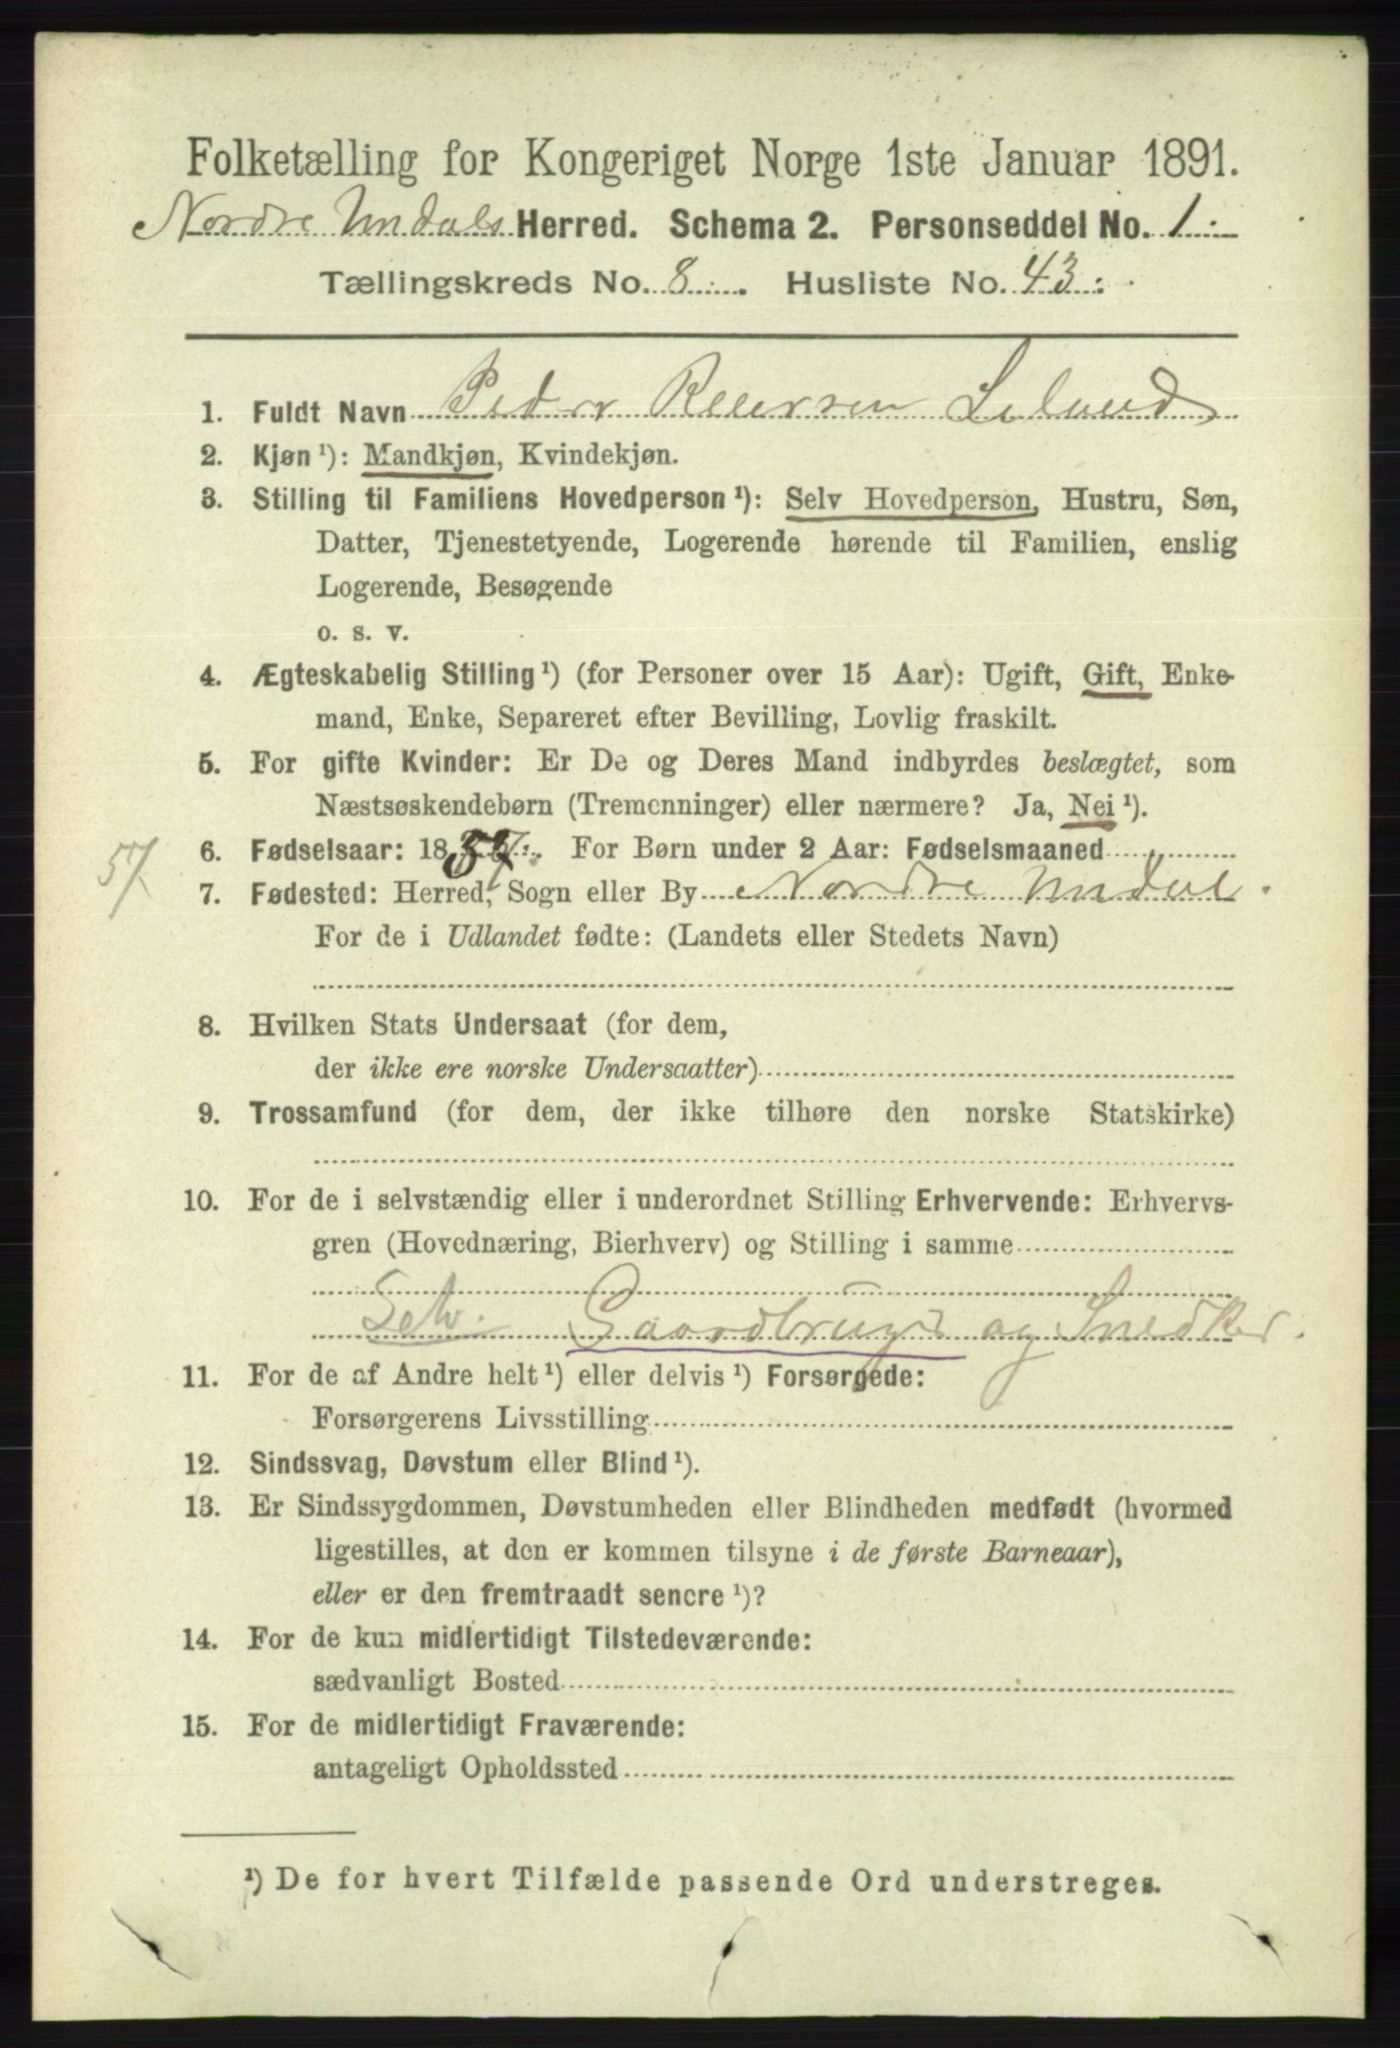 Folketælling for Kongeriget Norge 1ste Januar 1891.
Nordre Undals Herred. Schema 2. Personseddel No. 1.
Tællingskreds No. 8. Husliste No. 43.
1. Fuldt Navn Peder Reiersen Leland
2. Kjøn ¹): Mandkjøn, Kvindekjøn.
3. Stilling til Familiens Hovedperson ¹): Selv Hovedperson, Hustru, Søn,
Datter, Tjenestetyende, Logerende hørende til Familien, enslig
Logerende, Besøgende
o. s. v.
4. Ægteskabelig Stilling ¹) (for Personer over 15 Aar): Ugift, Gift, Enke-
mand, Enke, Separeret efter Bevilling, Lovlig fraskilt.
5. For gifte Kvinder: Er De og Deres Mand indbyrdes beslægtet, som
Næstsøskendebørn (Tremenninger) eller nærmere? Ja, Nei ¹).
57 6. Fødselsaar: 1857. For Børn under 2 Aar: Fødselsmaaned
7. Fødested: Herred, Sogn eller By Nordre Undal.
For de i Udlandet fødte: (Landets eller Stedets Navn)
8. Hvilken Stats Undersaat (for dem,
der ikke ere norske Undersaatter)
9. Trossamfund (for dem, der ikke tilhøre den norske Statskirke)
10. For de i selvstændig eller i underordnet Stilling Erhvervende: Erhvervs-
gren (Hovednæring, Bierhverv) og Stilling i samme
Selv. Gaardbruger og Snedker.
11. For de af Andre helt ¹) eller delvis ¹) Forsørgede:
Forsørgerens Livsstilling
12. Sindssvag, Døvstum eller Blind ¹).
13. Er Sindssygdommen, Døvstumheden eller Blindheden medfødt (hvormed
ligestilles, at den er kommen tilsyne i de første Barneaar),
eller er den fremtraadt senere ¹)?
14. For de kun midlertidigt Tilstedeværende:
sædvanligt Bosted
15. For de midlertidigt Fraværende:
antageligt Opholdssted
¹) De for hvert Tilfælde passende Ord understreges.